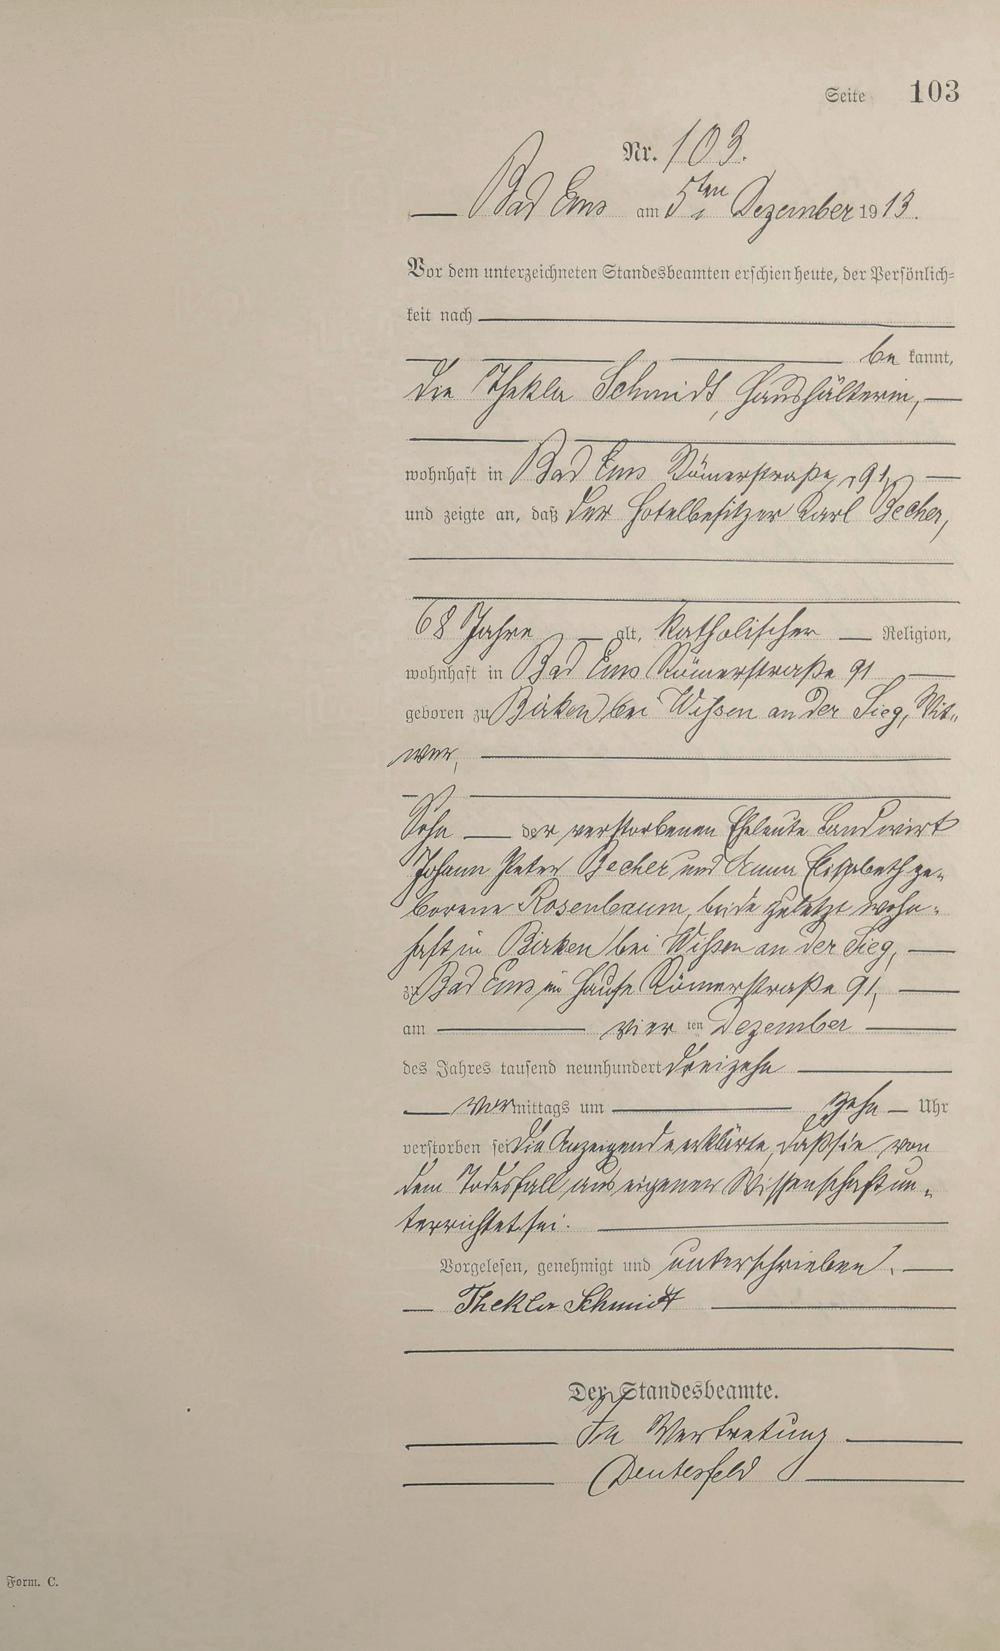 Seite 103
Nr. 103.
Bad Ems am 5ten Dezember 1913.
Vor dem unterzeichneten Standesbeamten erschien heute, der Persönlich=
keit nach
be kannt,
die Thekla Schmidt, Haushälterin,
wohnhaft in Bad Ems Römerstraße 91,
und zeigte an, daß der Hotelbesitzer Karl Becher,
68 Jahre alt, katholischer Religion,
wohnhaft in Bad Ems Römerstraße 91
geboren zu Birken bei Wissen an der Sieg, Wit-
wer,
Sohn der verstorbenen Eheleute Landwirt
Johann Peter Becher und Anna Elisabeth ge-
borene Rosenbaum, beide zuletzt wohn-
haft in Birken bei Wissen an der Sieg,
zu Bad Ems im Hause Römerstraße 91,
am vier ten Dezember
des Jahres tausend neunhundert dreizehn
Vormittags um zehn Uhr
verstorben sei. Die Anzeigende erklärte, daß sie von
dem Todesfall aus eigener Wissenschaft un-
terrichtet sei.
Vorgelesen, genehmigt und unterschrieben.
Thekla Schmidt
Der Standesbeamte.
In Vertretung
Deutesfeld
Form. C.